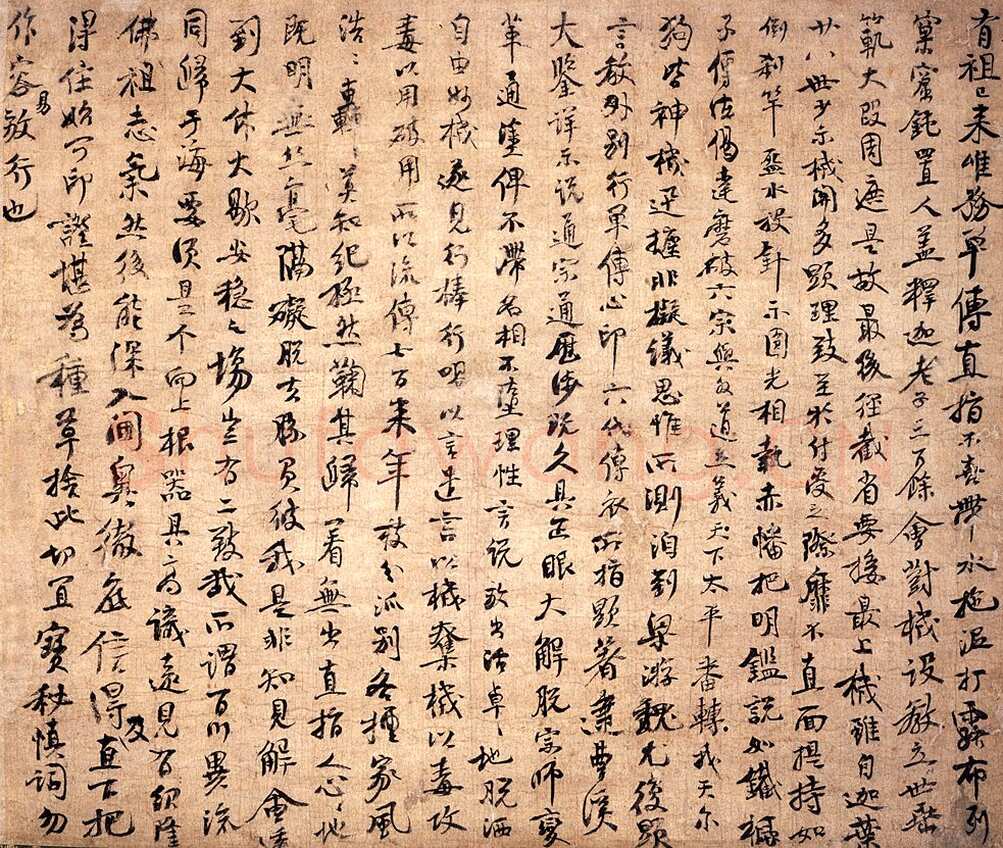 有祖已来唯務単傳直指不喜帶水拖泥打露布列
窠窟鈍置人盖釋迦老子三百餘會對機設教立世垂
範大段周遮是故最後徑截省要接最上機雖自迦葉
廿八世少示機關多顯理致至於付受之際靡不直面提持如
倒刹竿盋水投針示圓光相執赤幡把明鑑說如鐵橛
子傳法偈達磨破六宗與外道立義天下太平番轉我天尔
狗皆神機迅捷非擬議思惟所測洎到梁游魏尤復顯
言教外別行單傳心印六代傳衣所指顯著逮曹溪
大鑒詳示說通宗通歷涉既久具正眼大解脫宗師變
革通塗俾不滯名相不墮理性言説放出活卓〻地脫洒
自由妙機遂見行棒行喝以言遣言以機奪機以毒攻
毒以用破用所以流傳七百来年枝分派別各擅家風
浩〻轟〻莫知紀極然鞠其歸著無出直指人心〻地
既明無絲毫隔礙脫去勝負彼我是非知見解會透
到大休大歇安穩之場豈有二致哉所謂百川異流
同歸于海要須是个向上根器具高識遠見有紹隆
佛祖志氣然後能深入閫奧徹底信得及直下把
得住始可印證堪為種草捨此切宜寶秘慎詞勿
作容易放行也
Shufawang.cn